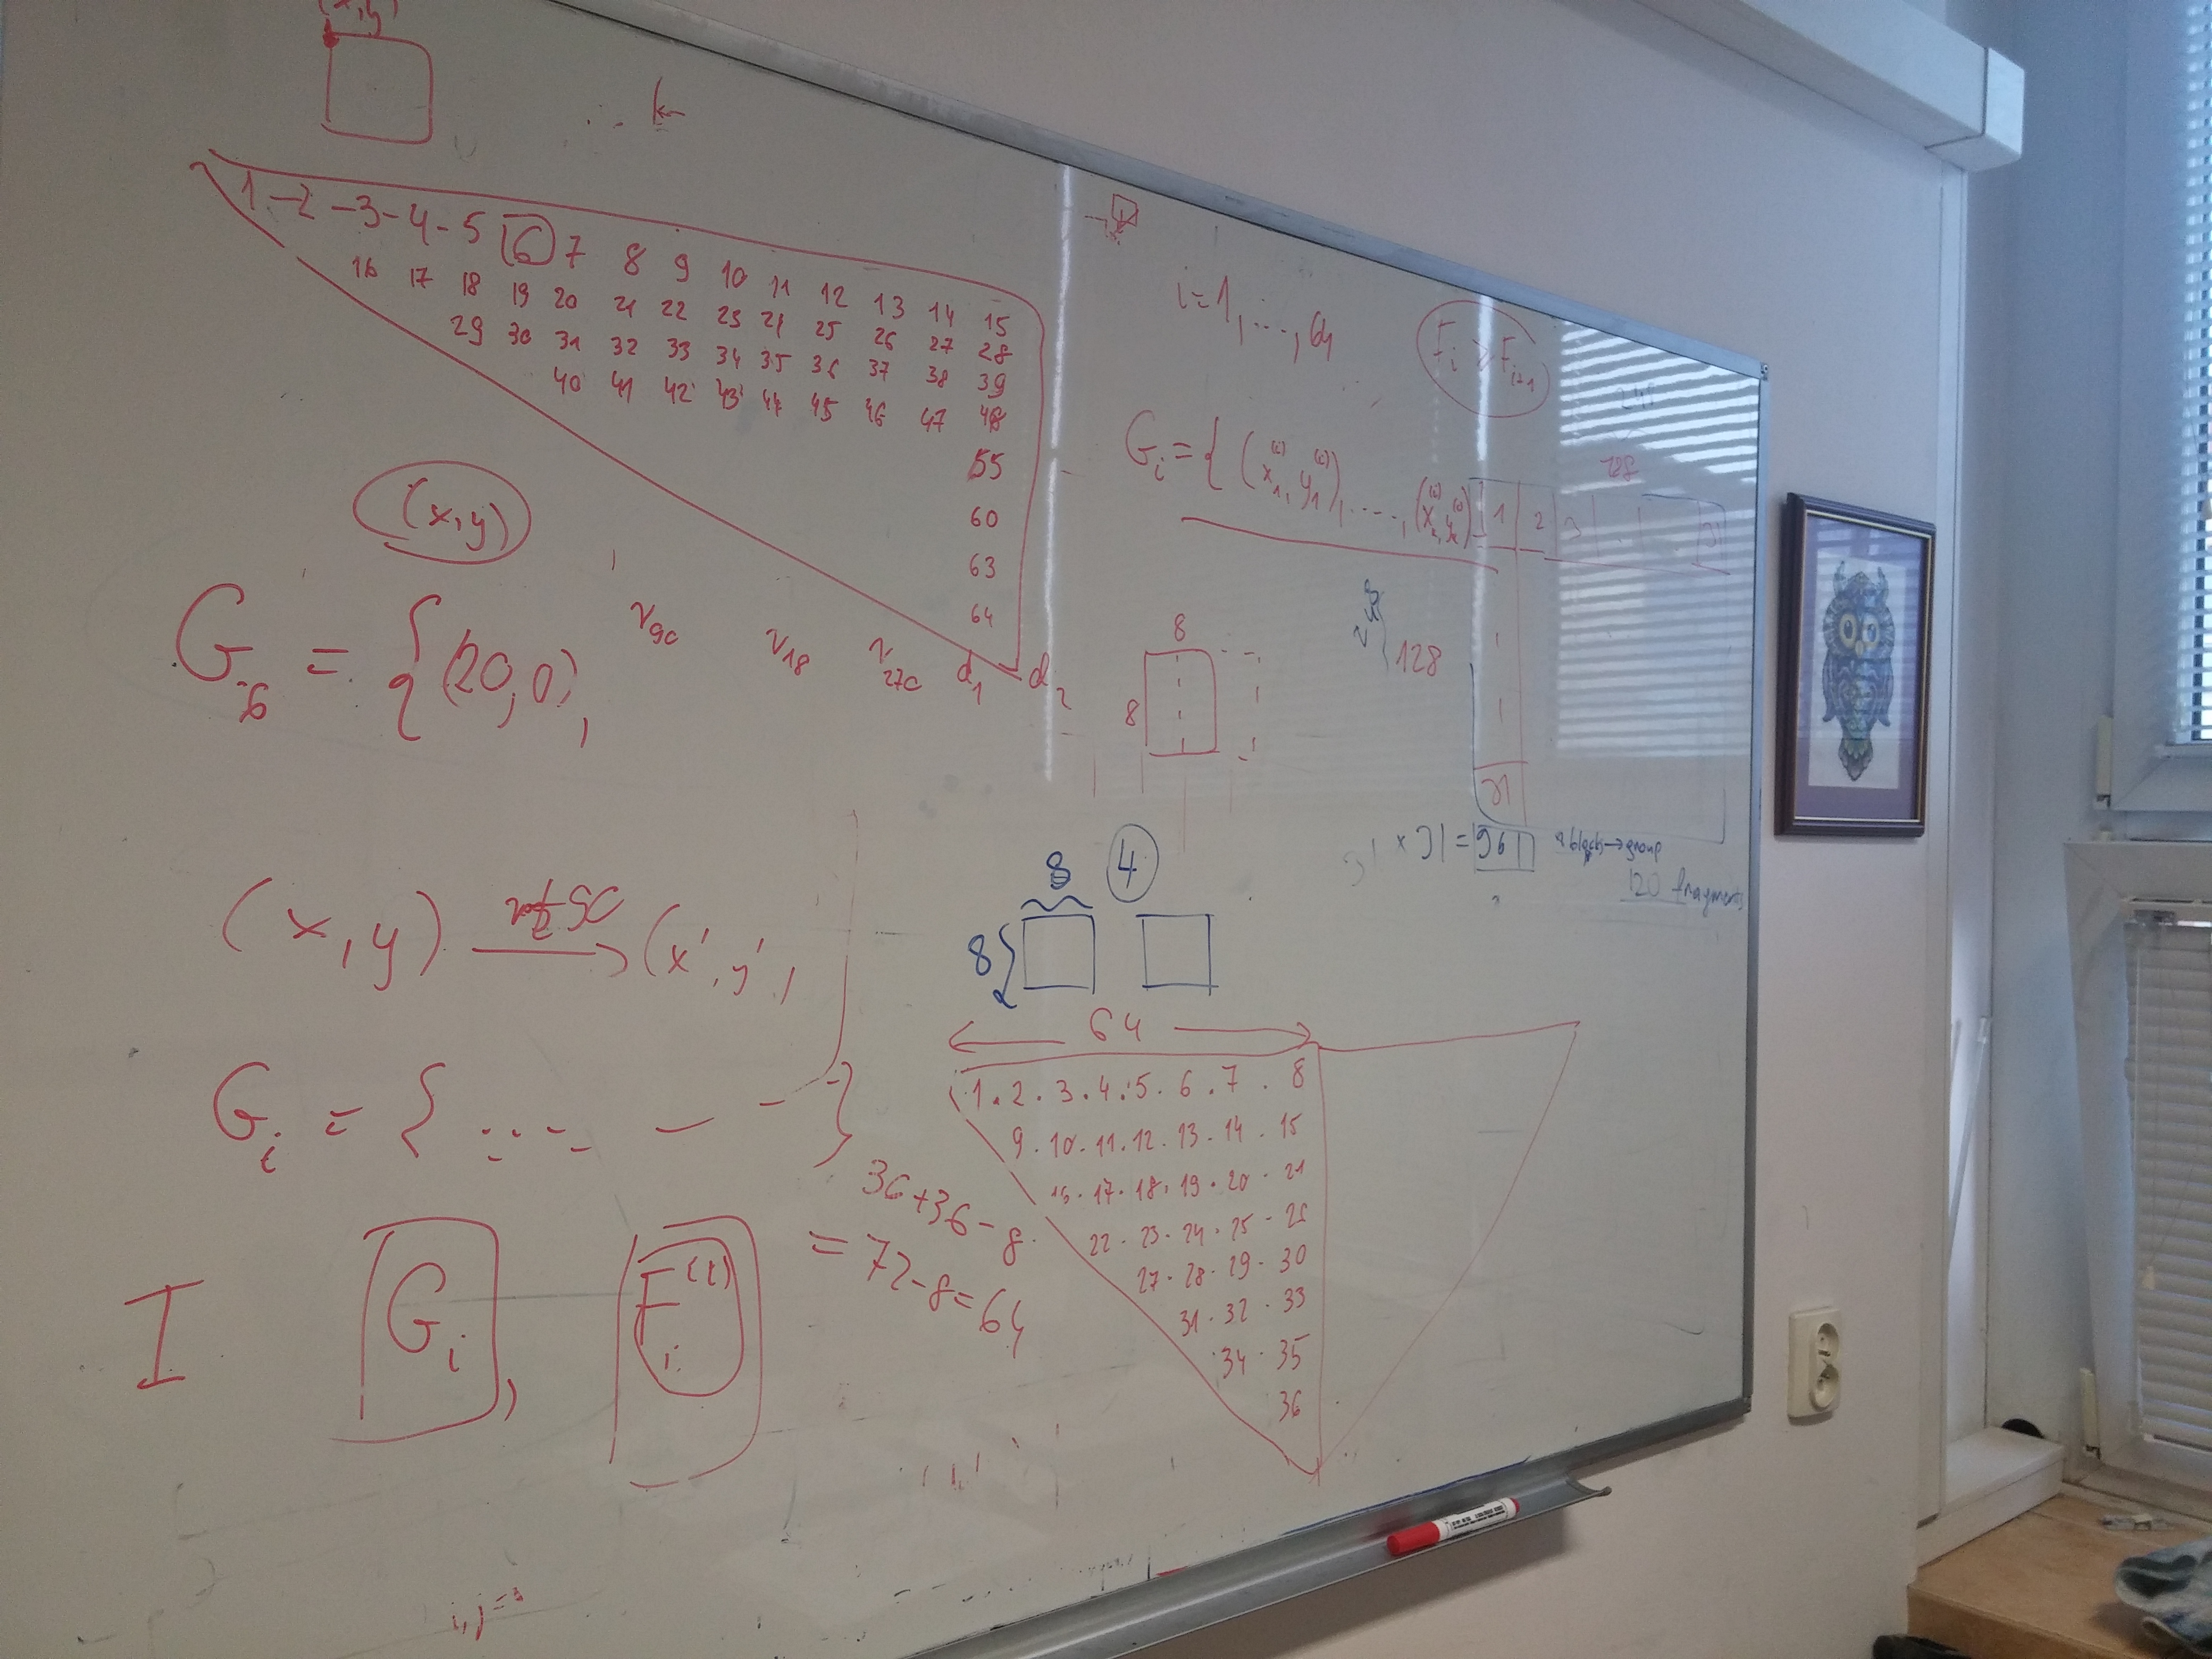 (x,y)
k
1 - 2 - 3 - 4 - 5 6 7 8 9 10 11 12 13 14 15
16 17 18 19 20 21 22 23 24 25 26 27 28
29 30 31 32 33 34 35 36 37 38 39
40 41 42 43 44 45 46 47 48
55
60
63
64
(x,y)
G6 = { (20,0),
r90 r18 r27c d1 d2
(x,y) SC → (x', y',)
Gi = { ..... — - - }
I Gi, Fi(i)
i,j=3
i=1,...,64
Fi ≥ Fi+1
Gi = { (x1(i), y1(i)), ....., (
128
1 2 3
31
248
128
8
8
31 × 31 = 961
4 blocks → group
120 fragments
8 4
8
64
1 . 2 . 3 . 4 . 5 . 6 . 7 . 8
9 . 10 . 11 . 12 . 13 . 14 . 15
16 . 17 . 18 . 19 . 20 . 21
22 . 23 . 24 . 25 - 26
27 . 28 . 29 - 30
31 . 32 . 33
34 . 35
36
36+36-8
= 72-8=64